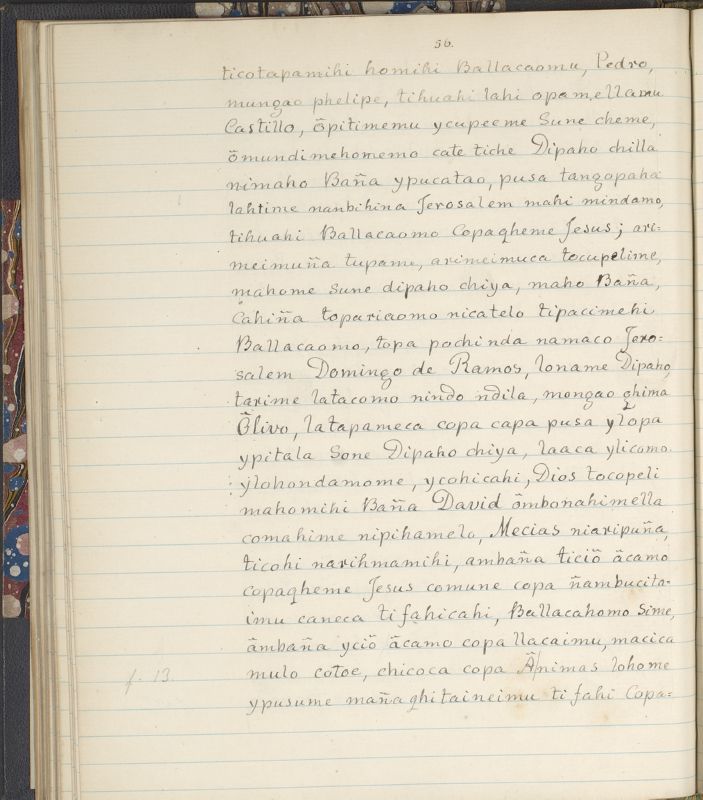 56.
ticotapamihi homihi Ballacaomu, Pedro,
mungao phelipe, tihuahi lahi opamellamu
Castillo, õpitimemu ycupeeme Sune cheme,
õmundimehomemo cate tiche Dipaho chilla
nimaho Baña ypucatao, pusa tangopaha
lahtime nanbihina Jerosalem mahi mindamo,
tihuahi Ballacaomo Copaqheme Jesus; ari=
meimuña tupame, arimeimuca tocupelime,
mahome Sune dipaho chiya, maho Baña,
Cahiña topariaomo nicatelo tipacimehi
Ballacaomo, topa pochinda namaco Jero=
salem Domingo de Ramos, loname Dipaho,
tarime latacomo nindo ndila, mongao ghima
Õlivo, latapameca copa capa pusa ylopa
ypitala Sone Dipaho chiya, laaca ylicomo
ylohondamome, ycohicahi, Dios tocopeli
mahomihi Baña David õmbonahimella
comahime nipihamelo, Mecias niaripuña,
ticohi narihmamihi, ambaña ticiõ ãcamo
copaqheme Jesus comune copa ñambucita=
imu caneca tifahicahi, Ballacahomo Sime,
ãmbaña yciõ ãcamo copallacaimu, macica
mulo cotoe, chicoca copa Ãnimas lohome
f. 13.
ypusume mañaqhitaineimu tifahi Copa=